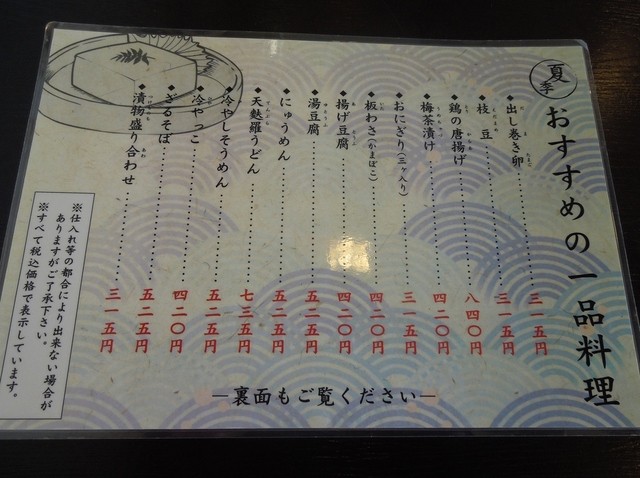 夏季
おすすめの一品料理
◆出し巻き卵…………三一五円
◆枝豆…………三一五円
◆鶏の唐揚げ…………八四〇円
◆梅茶漬け…………四二〇円
◆おにぎり(三ヶ入り)…………三一五円
◆板わさ(かまぼこ)…………四二〇円
◆揚げ豆腐…………四二〇円
◆湯豆腐…………五二五円
◆にゅうめん…………五二五円
◆天麩羅うどん…………七三五円
◆冷やしそうめん…………五二五円
◆冷やっこ…………四二〇円
◆ざるそば…………五二五円
◆漬物盛り合わせ…………三一五円
※仕入れ等の都合により出来ない場合が
ありますがご了承下さい。
※すべて税込価格で表示しています。
―裏面もご覧ください―